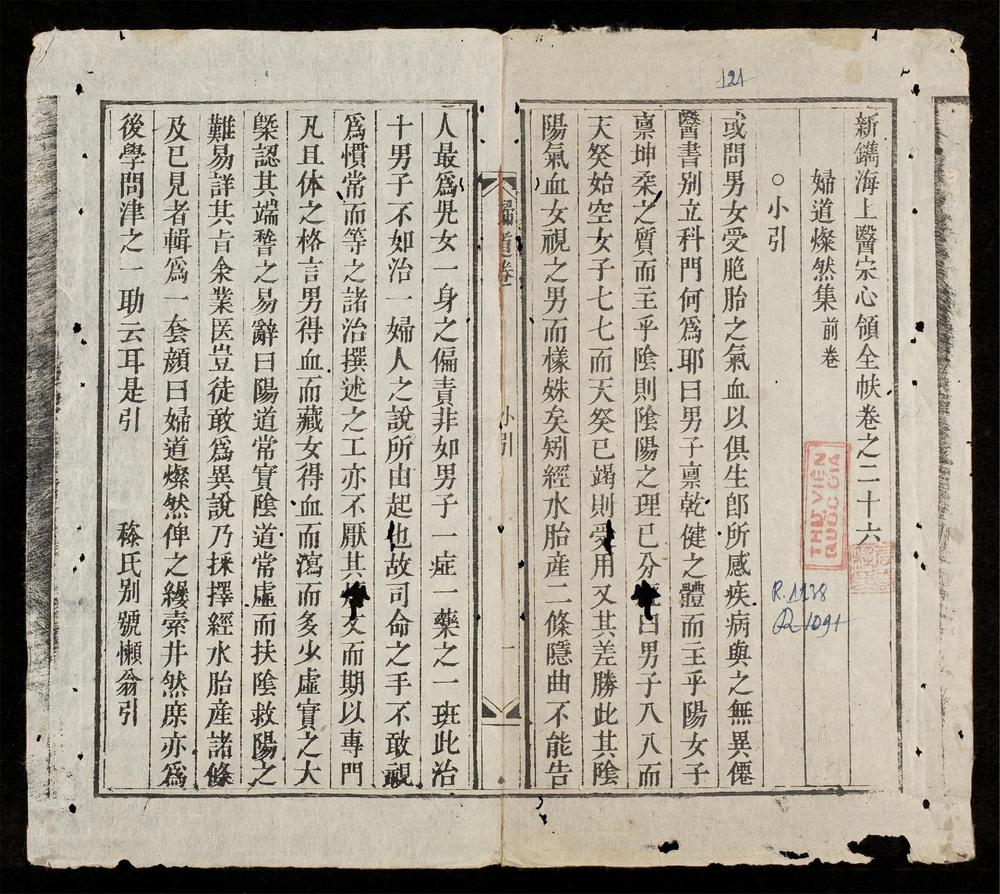 121
新鐫海上醫宗心領全帙卷之二十六
婦道燦然集 前卷
○小引
或問男女受胞胎之氣血以俱生卽所感疾病與之無異僊
醫書别立科門何爲耶曰男子禀乾健之體而主乎陽女子
禀坤柔之質而主乎陰則陰陽之理已分 曰男子八八而
天癸始空女子七七而天癸已竭則受用又其差勝此其陰
陽氣血女視之男而樣姝矣矧經水胎産二條隱曲不能告
婦道卷
小引
一
人最爲児女一身之偏責非如男子一症一藥之一班此治
十男子不如治一婦人之說所由起也故司命之手不敢視
爲慣常而等之諸治撰述之工亦不厭其 文而期以專門
凡且体之格言男得血而藏女得血而瀉而多少虛實之大
槩認其端朁之易辭曰陽道常實陰道常虛而扶陰救陽之
難易詳其旨余業医豈徒敢爲異說乃採擇經水胎產諸條
及已見者輯爲一套顔曰婦道燦然俾之縷索井然庶亦爲
後學問津之一助云耳是引
穇氏别號懶翁引
THƯ VIỆN
QUỐC GIA
R.1238
R 1091